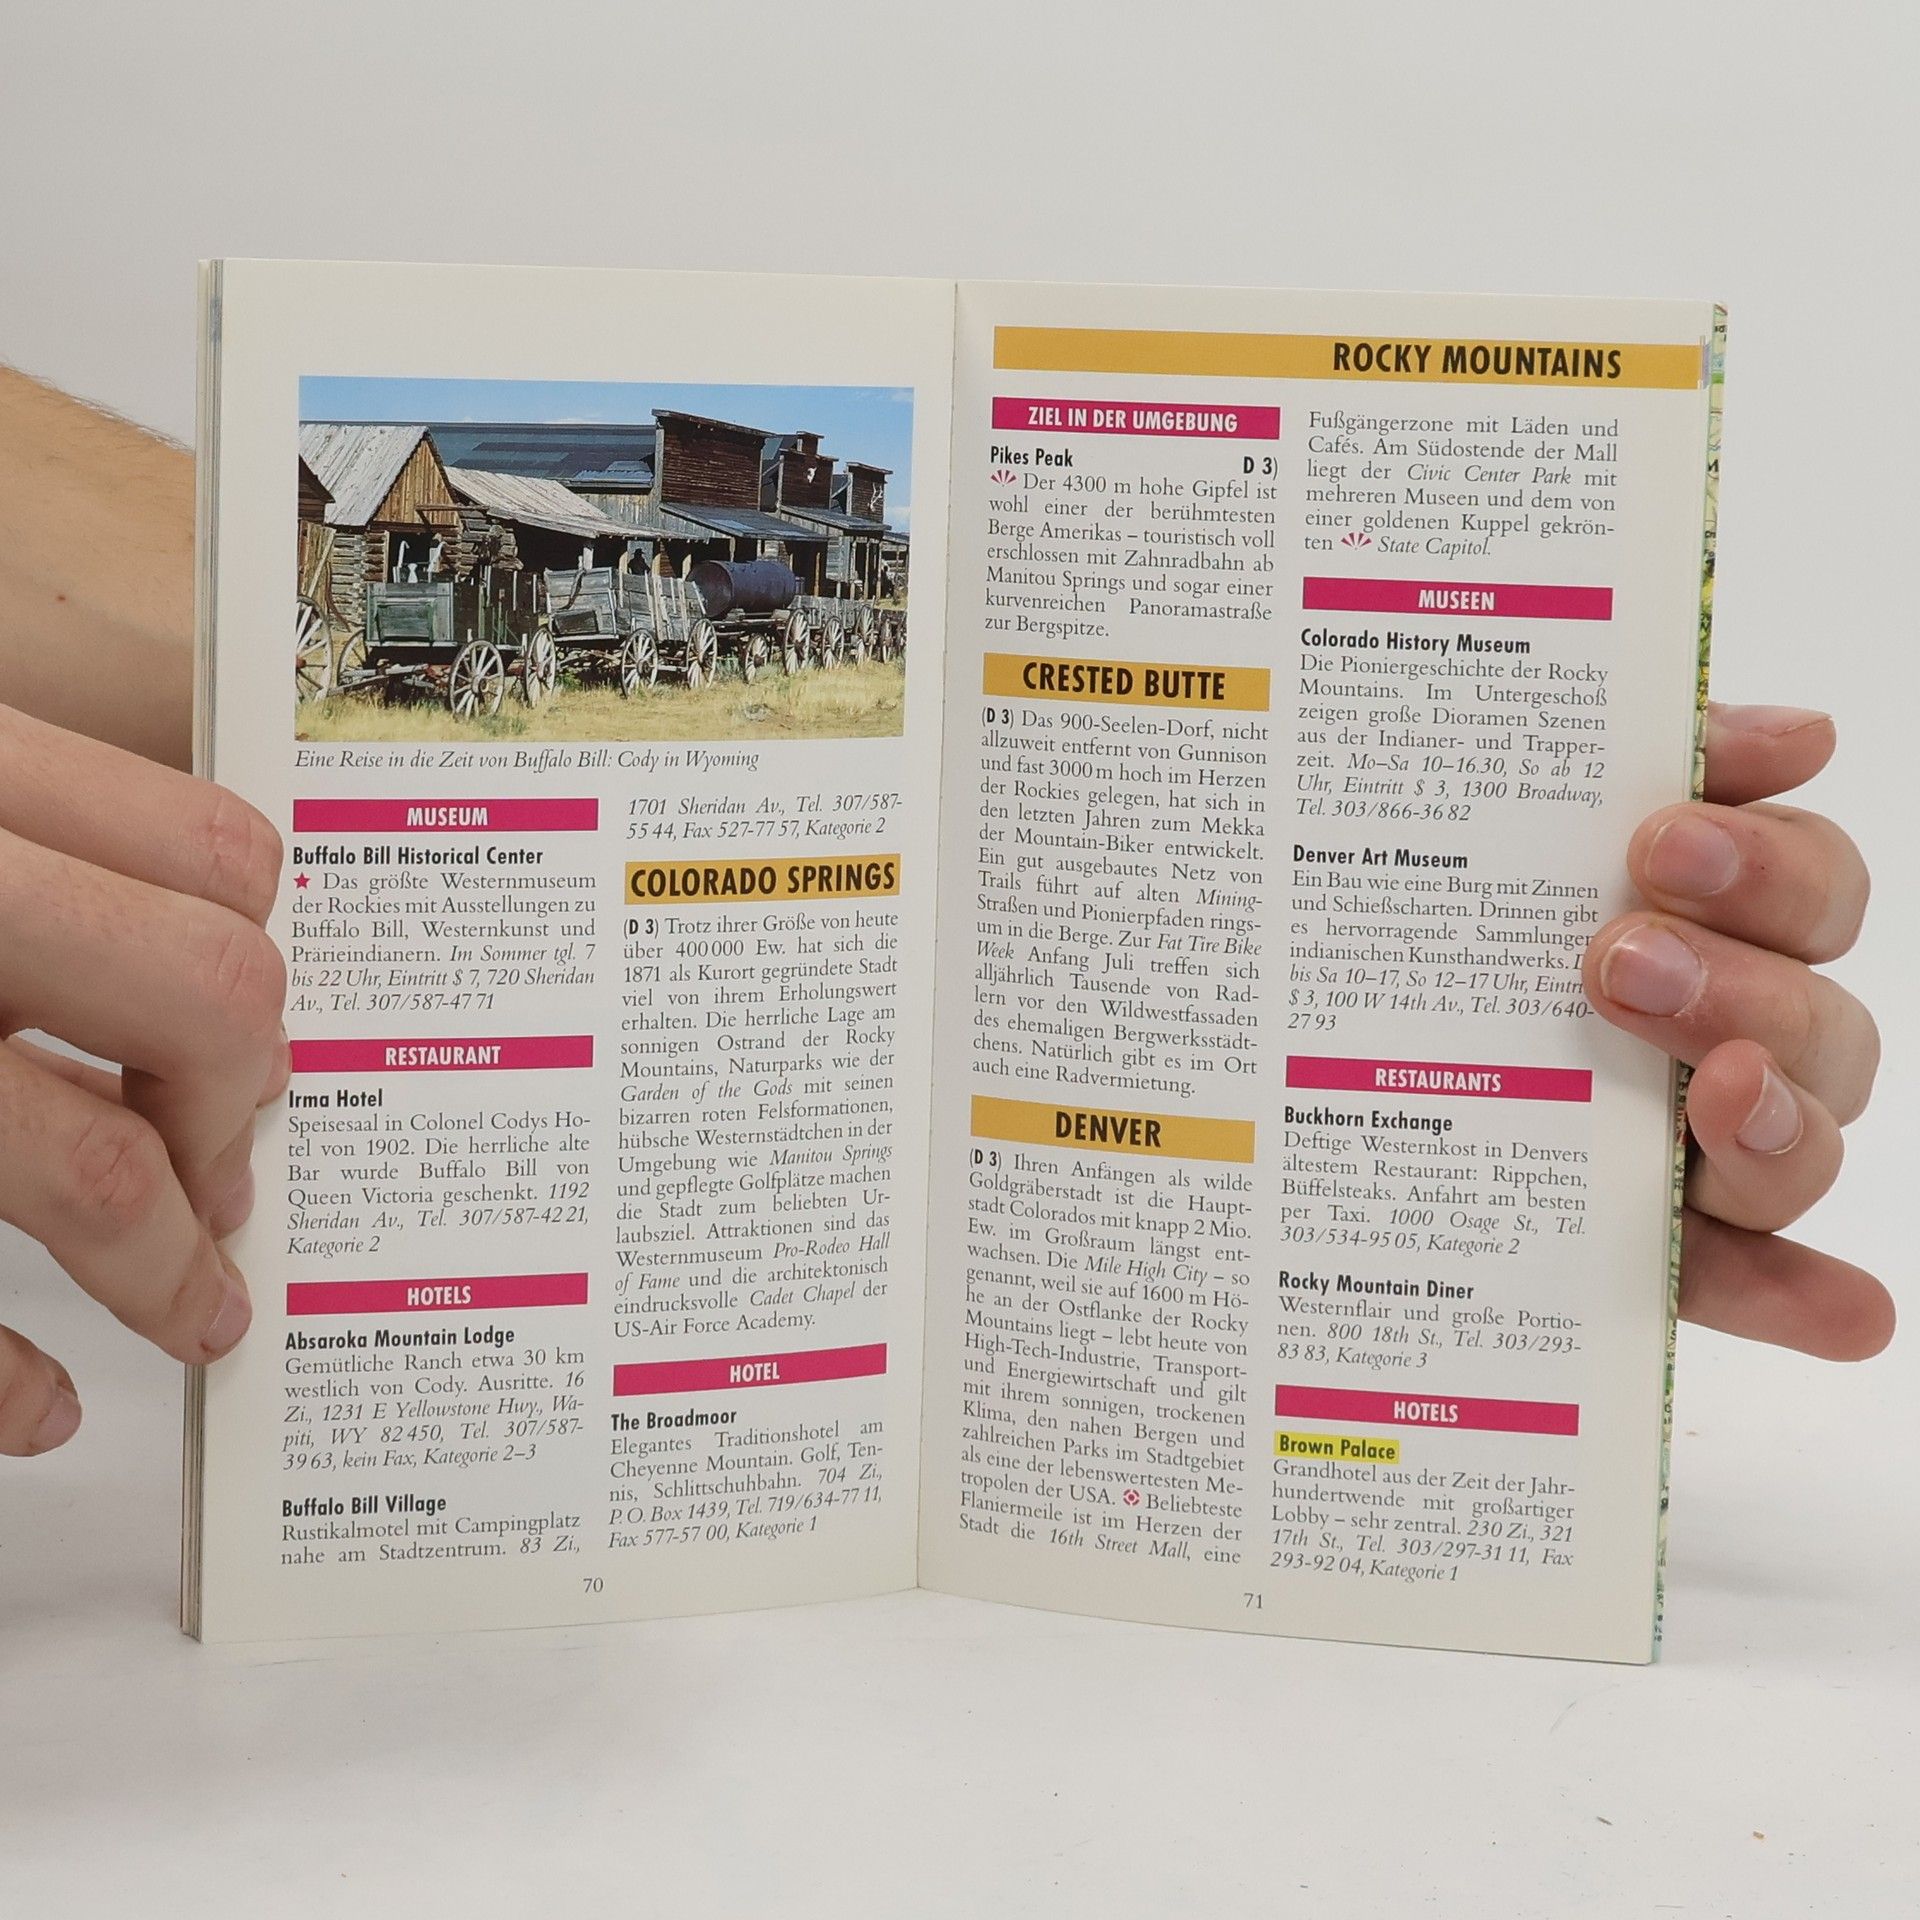 Eine Reise in die Zeit von Buffalo Bill: Cody in Wyoming
MUSEUM
Buffalo Bill Historical Center
★ Das größte Westernmuseum
der Rockies mit Ausstellungen zu
Buffalo Bill, Westernkunst und
Prärieindianern. Im Sommer tgl. 7
bis 22 Uhr, Eintritt $ 7, 720 Sheridan
Av., Tel. 307/587-47 71
RESTAURANT
Irma Hotel
Speisesaal in Colonel Codys Ho-
tel von 1902. Die herrliche alte
Bar wurde Buffalo Bill von
Queen Victoria geschenkt. 1192
Sheridan Av., Tel. 307/587-42 21,
Kategorie 2
HOTELS
Absaroka Mountain Lodge
Gemütliche Ranch etwa 30 km
westlich von Cody. Ausritte. 16
Zi., 1231 E Yellowstone Hwy., Wa-
piti, WY 82 450, Tel. 307/587-
39 63, kein Fax, Kategorie 2–3
Buffalo Bill Village
Rustikalmotel mit Campingplatz
nahe am Stadtzentrum. 83 Zi.,
1701 Sheridan Av., Tel. 307/587-
55 44, Fax 527-77 57, Kategorie 2
COLORADO SPRINGS
(D 3) Trotz ihrer Größe von heute
über 400 000 Ew. hat sich die
1871 als Kurort gegründete Stadt
viel von ihrem Erholungswert
erhalten. Die herrliche Lage am
sonnigen Ostrand der Rocky
Mountains, Naturparks wie der
Garden of the Gods mit seinen
bizarren roten Felsformationen,
hübsche Westernstädtchen in der
Umgebung wie Manitou Springs
und gepflegte Golfplätze machen
die Stadt zum beliebten Ur-
laubsziel. Attraktionen sind das
Westernmuseum Pro-Rodeo Hall
of Fame und die architektonisch
eindrucksvolle Cadet Chapel der
US-Air Force Academy.
HOTEL
The Broadmoor
Elegantes Traditionshotel am
Cheyenne Mountain. Golf, Ten-
nis, Schlittschuhbahn. 704 Zi.,
P. O. Box 1439, Tel. 719/634-77 11,
Fax 577-57 00, Kategorie 1
70
ROCKY MOUNTAINS
ZIEL IN DER UMGEBUNG
Pikes Peak D 3)
Der 4300 m hohe Gipfel ist
wohl einer der berühmtesten
Berge Amerikas – touristisch voll
erschlossen mit Zahnradbahn ab
Manitou Springs und sogar einer
kurvenreichen Panoramastraße
zur Bergspitze.
CRESTED BUTTE
(D 3) Das 900-Seelen-Dorf, nicht
allzuweit entfernt von Gunnison
und fast 3000 m hoch im Herzen
der Rockies gelegen, hat sich in
den letzten Jahren zum Mekka
der Mountain-Biker entwickelt.
Ein gut ausgebautes Netz von
Trails führt auf alten Mining-
Straßen und Pionierpfaden rings-
um in die Berge. Zur Fat Tire Bike
Week Anfang Juli treffen sich
alljährlich Tausende von Rad-
lern vor den Wildwestfassaden
des ehemaligen Bergwerksstädt-
chens. Natürlich gibt es im Ort
auch eine Radvermietung.
DENVER
(D 3) Ihren Anfängen als wilde
Goldgräberstadt ist die Haupt-
stadt Colorados mit knapp 2 Mio.
Ew. im Großraum längst ent-
wachsen. Die Mile High City – so
genannt, weil sie auf 1600 m Hö-
he an der Ostflanke der Rocky
Mountains liegt – lebt heute von
High-Tech-Industrie, Transport-
und Energiewirtschaft und gilt
mit ihrem sonnigen, trockenen
Klima, den nahen Bergen und
zahlreichen Parks im Stadtgebiet
als eine der lebenswertesten Me-
tropolen der USA. Beliebteste
Flaniermeile ist im Herzen der
Stadt die 16th Street Mall, eine
Fußgängerzone mit Läden und
Cafés. Am Südostende der Mall
liegt der Civic Center Park mit
mehreren Museen und dem von
einer goldenen Kuppel gekrön-
ten State Capitol.
MUSEEN
Colorado History Museum
Die Pioniergeschichte der Rocky
Mountains. Im Untergeschoß
zeigen große Dioramen Szenen
aus der Indianer- und Trapper-
zeit. Mo–Sa 10–16.30, So ab 12
Uhr, Eintritt $ 3, 1300 Broadway,
Tel. 303/866-36 82
Denver Art Museum
Ein Bau wie eine Burg mit Zinnen
und Schießscharten. Drinnen gibt
es hervorragende Sammlungen
indianischen Kunsthandwerks.
bis Sa 10–17, So 12–17 Uhr, Eintri
$ 3, 100 W 14th Av., Tel. 303/640-
27 93
RESTAURANTS
Buckhorn Exchange
Deftige Westernkost in Denvers
ältestem Restaurant: Rippchen,
Büffelsteaks. Anfahrt am besten
per Taxi. 1000 Osage St., Tel.
303/534-95 05, Kategorie 2
Rocky Mountain Diner
Westernflair und große Portio-
nen. 800 18th St., Tel. 303/293-
83 83, Kategorie 3
HOTELS
Brown Palace
Grandhotel aus der Zeit der Jahr-
hundertwende mit großartiger
Lobby – sehr zentral. 230 Zi., 321
17th St., Tel. 303/297-31 11, Fax
293-92 04, Kategorie 1
71